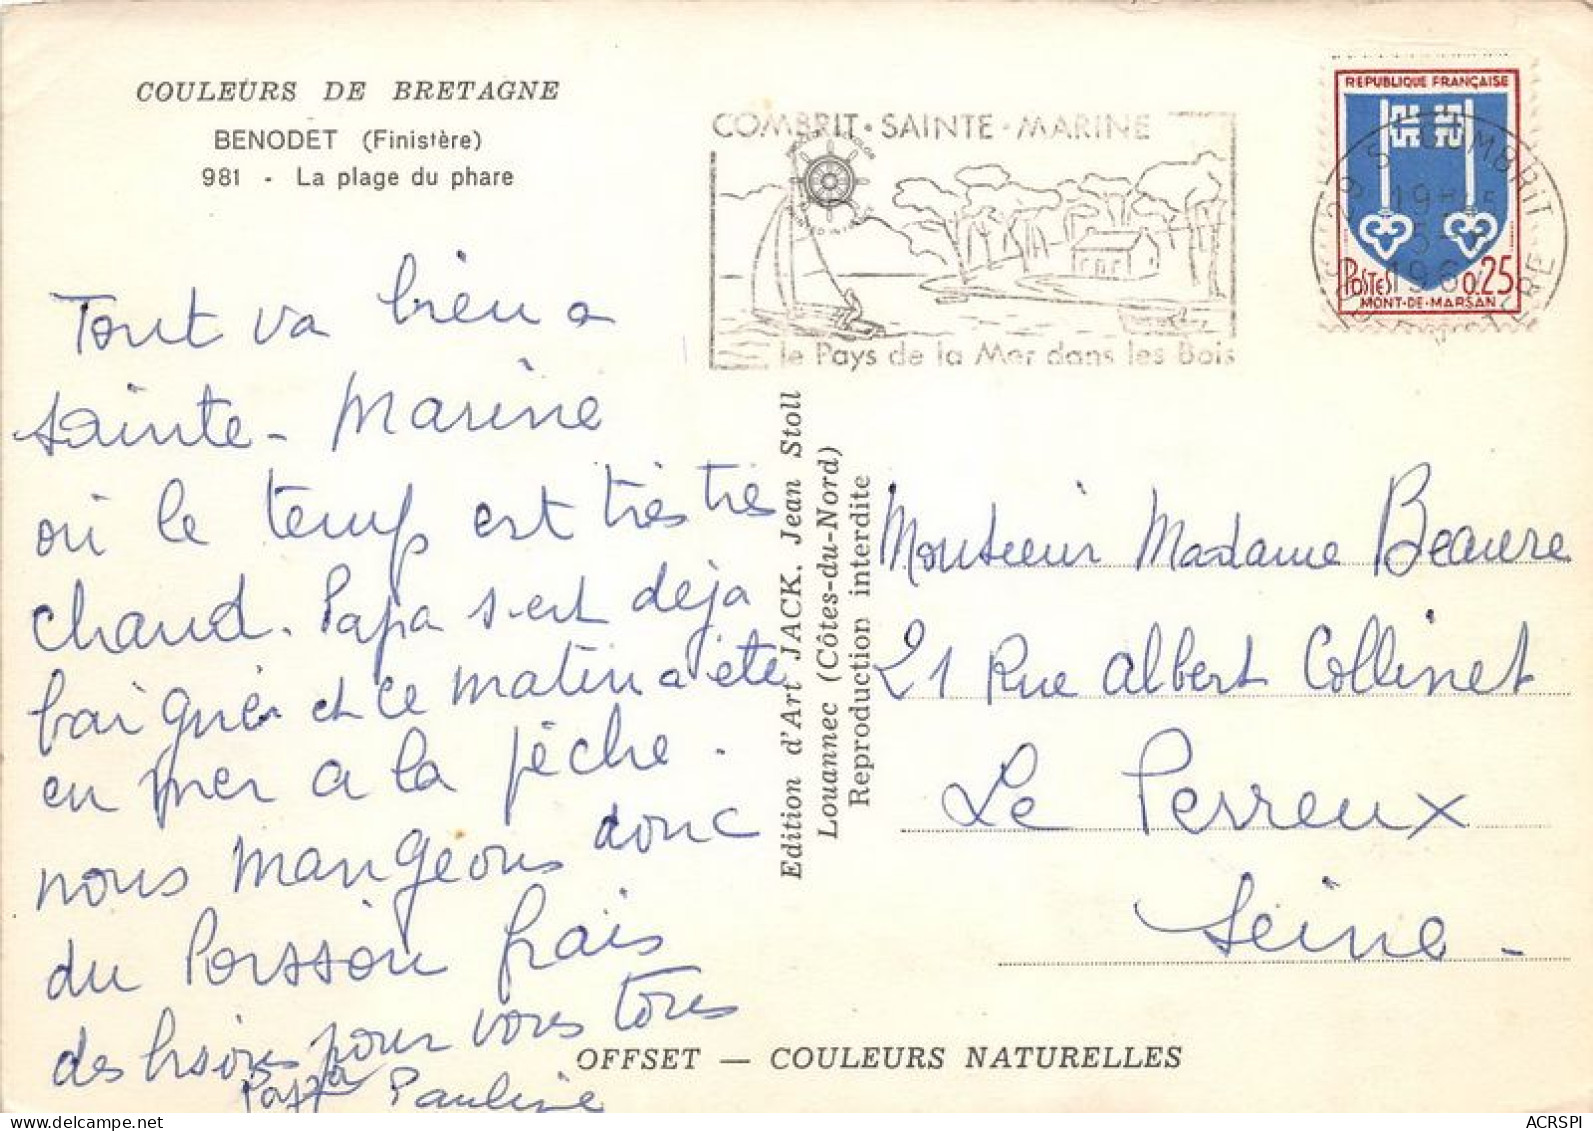 COULEURS DE BRETAGNE
BENODET (Finistère)
981 - La plage du phare
COMBRIT · SAINTE - MARINE
le Pays de la Mer dans les Bois
REPUBLIQUE FRANÇAISE
POSTES 0,25
MONT-DE-MARSAN
COMBRIT
FINISTERE
Tout va bien a
Sainte - Marine
où le temps est très très
chaud. Papa s'est déja
baigner et ce matin a été
en mer a la pêche.
nous mangeons donc
du Poisson frais
des bisous pour vous tous
Pauline
Edition d'Art JACK, Jean Stoll
Louannec (Côtes-du-Nord)
Reproduction interdite
Monsieur Madame Beaure
21 Rue Albert Collinet
Le Perreux
Seine -
OFFSET — COULEURS NATURELLES
www.delcampe.net
ACRSPI